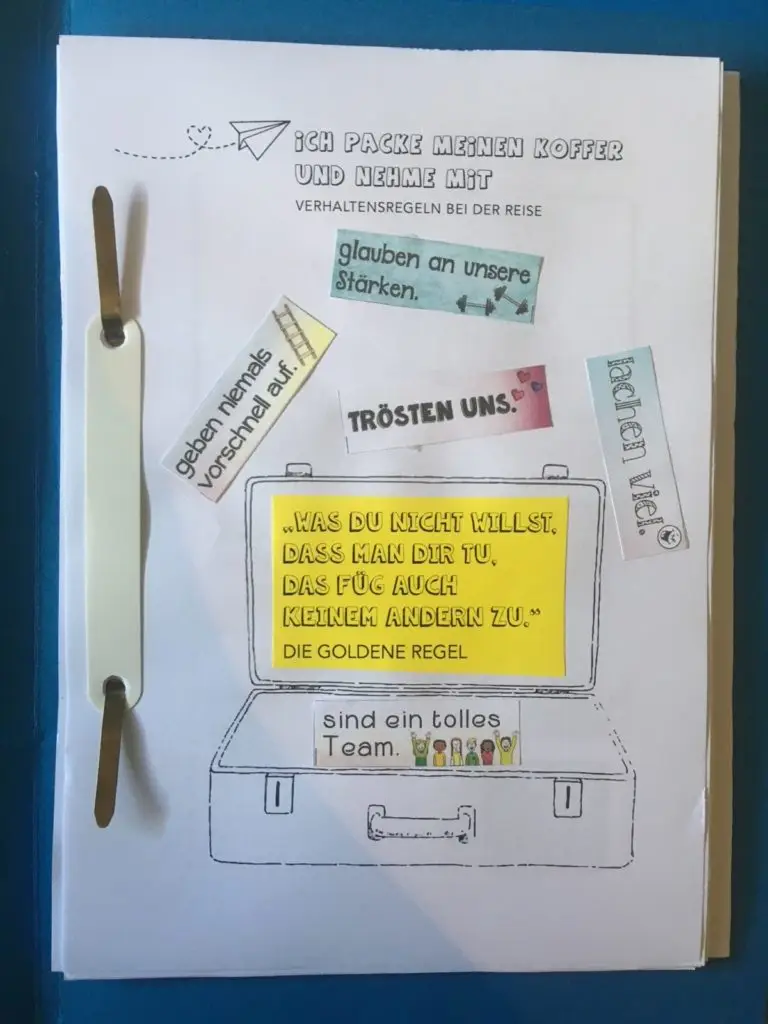 ICH PACKE MEINEN KOFFER
UND NEHME MIT
VERHALTENSREGELN BEI DER REISE
glauben an unsere
Stärken.
geben niemals
vorschnell auf.
TRÖSTEN UNS.
lachen viel.
„WAS DU NICHT WILLST,
DASS MAN DIR TU,
DAS FÜG AUCH
KEINEM ANDERN ZU.“
DIE GOLDENE REGEL
sind ein tolles
Team.